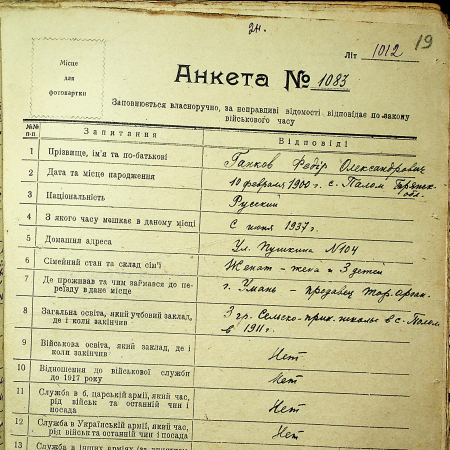 24.
19
Літ 1012
Місце
для
фотокартки
Анкета № 1083
Заповнюється власноручно, за неправливі відомості відповідає по закону
військового часу
№№
п-п
Запитання
Відповіді
1 Прізвище, ім'я та по-батькові Ганков Федір Олександрович
2 Дата та місце народження 10 февраля 1900 г. с. Палом
обл.
3 Національність Русский
4 З якого часу мешкає в даному місці С июня 1937 г.
5 Домашня адреса Ул. Пушкина N 104
6 Сімейний стан та склад сім'ї Женат – жена и 3 детей
7 Де проживав та чим займався до пе-
реїзду в дане місце г. Умань – продавец
8 Загальна освіта, який учбовий заклад,
де і коли закінчив 3 гр. Сельско-прих. школы в с. Палом
в 1911 г.
9 Військова освіта, який заклад, де і
коли закінчив Нет
10 Відношення до військової служби
до 1917 року Нет
11 Служба в б. царській армії, який час,
рід військ та останній чин і
посада Нет
12 Служба в Українській армії, який час,
рід військ та останній чин і посада Нет
13